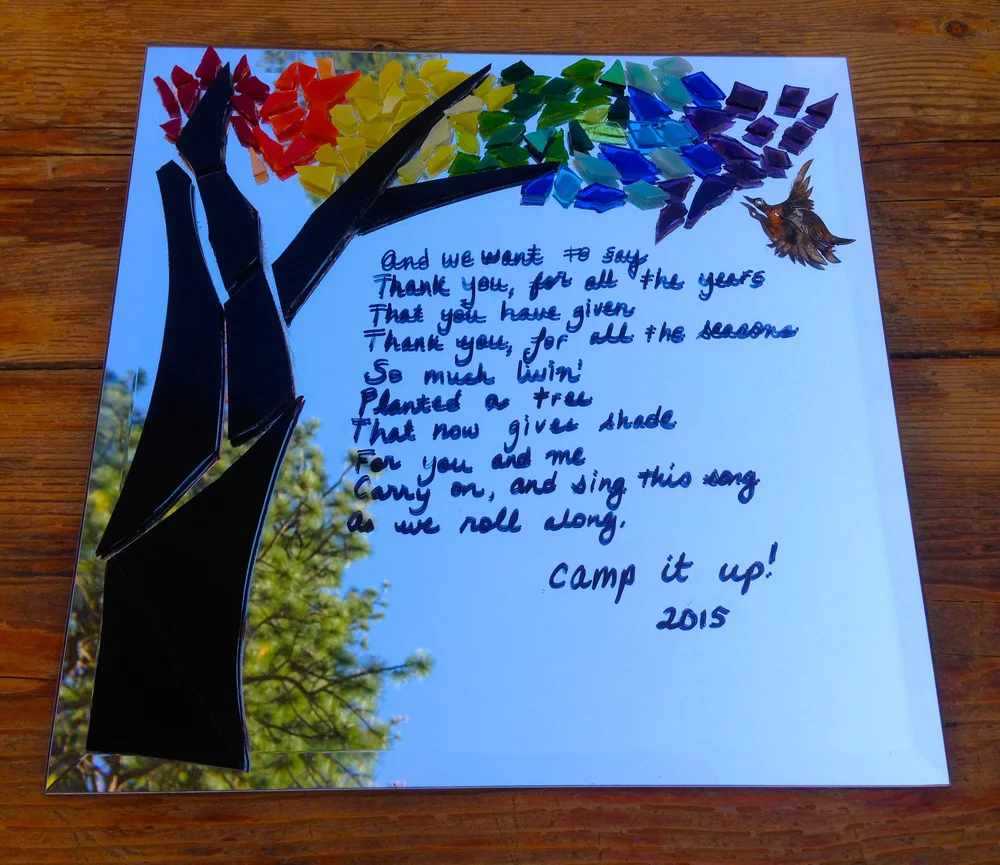 And we want to say
Thank you, for all the years
That you have given
Thank you, for all the seasons
So much livin'
Planted a tree
That now gives shade
For you and me
Carry on, and sing this song
As we roll along.
camp it up!
2015